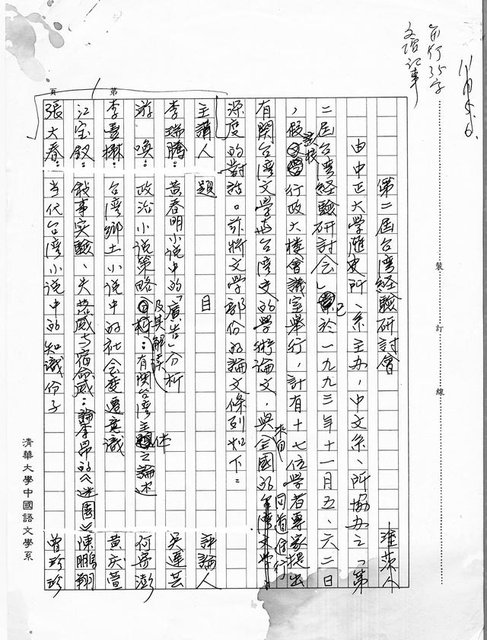 每行35字
文啓記事
第二屆台灣經驗研討會
由中正大學歷史所、系主辦，中文系、所協辦之「第
二屆台灣經驗研討會」已於一九九三年十一月五、六二日
，假該校行政大樓會議室舉行，計有十七位學者專家提出
有關台灣文學與台灣史的學術論文，與來自全國的台灣文學同道進行
深度的對話。茲將文學部份的論文條列如下：
主講人 題 目 評論人
李瑞騰：黃春明小說中的「廣告」分析
游 喚：政治小說策略及其解讀：有關台灣主體之論述 何寄澎
李豐楙：台灣鄉土小說中的社會變遷意識 黃慶萱
江寶釵：敘事實驗、失落感與宿命感：論李昂的《迷園》 陳鵬翔
張大春：當代台灣小說中的知識份子 曾珍珍
第 頁
裝 訂 線
清華大學中國語文學系